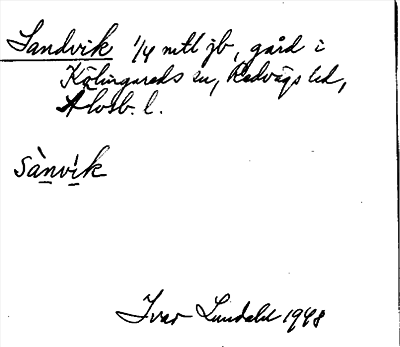 Sandvik 1/4 mtl jb, gård i
Kölingareds sn, Redvägs hd,
Älvsb. l.
sànvik
Ivar Lundahl 1948